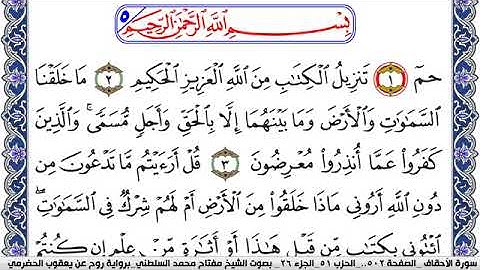 بِسْمِ ٱللَّهِ ٱلرَّحْمَٰنِ ٱلرَّحِيمِ ٥
حمٓ ١ تَنزِيلُ ٱلْكِتَٰبِ مِنَ ٱللَّهِ ٱلْعَزِيزِ ٱلْحَكِيمِ ٢ مَا خَلَقْنَا
ٱلسَّمَٰوَٰتِ وَٱلْأَرْضَ وَمَا بَيْنَهُمَا إِلَّا بِٱلْحَقِّ وَأَجَلٍ مُّسَمًّى ۚ وَٱلَّذِينَ
كَفَرُوا۟ عَمَّا أُنذِرُوا۟ مُعْرِضُونَ ٣ قُلْ أَرَءَيْتُم مَّا تَدْعُونَ مِن
دُونِ ٱللَّهِ أَرُونِي مَاذَا خَلَقُوا۟ مِنَ ٱلْأَرْضِ أَمْ لَهُمْ شِرْكٌ فِي ٱلسَّمَٰوَٰتِ ۖ
ٱئْتُونِي بِكِتَٰبٍ مِّن قَبْلِ هَٰذَا أَوْ أَثَٰرَةٍ مِّنْ عِلْمٍ إِن كُنتُمْ
سورة الأحقاف_الصفحة ٥٠٢_ الحزب ٥١_الجزء ٢٦_ بصوت الشيخ مفتاح محمد السلطني_برواية روح عن يعقوب الحضرمي